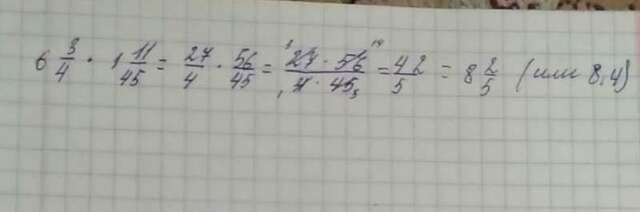 6 3/4 · 1 11/45 = 27/4 · 56/45 = 27 · 56/4 · 45 = 42/5 = 8 2/5 (или 8,4)